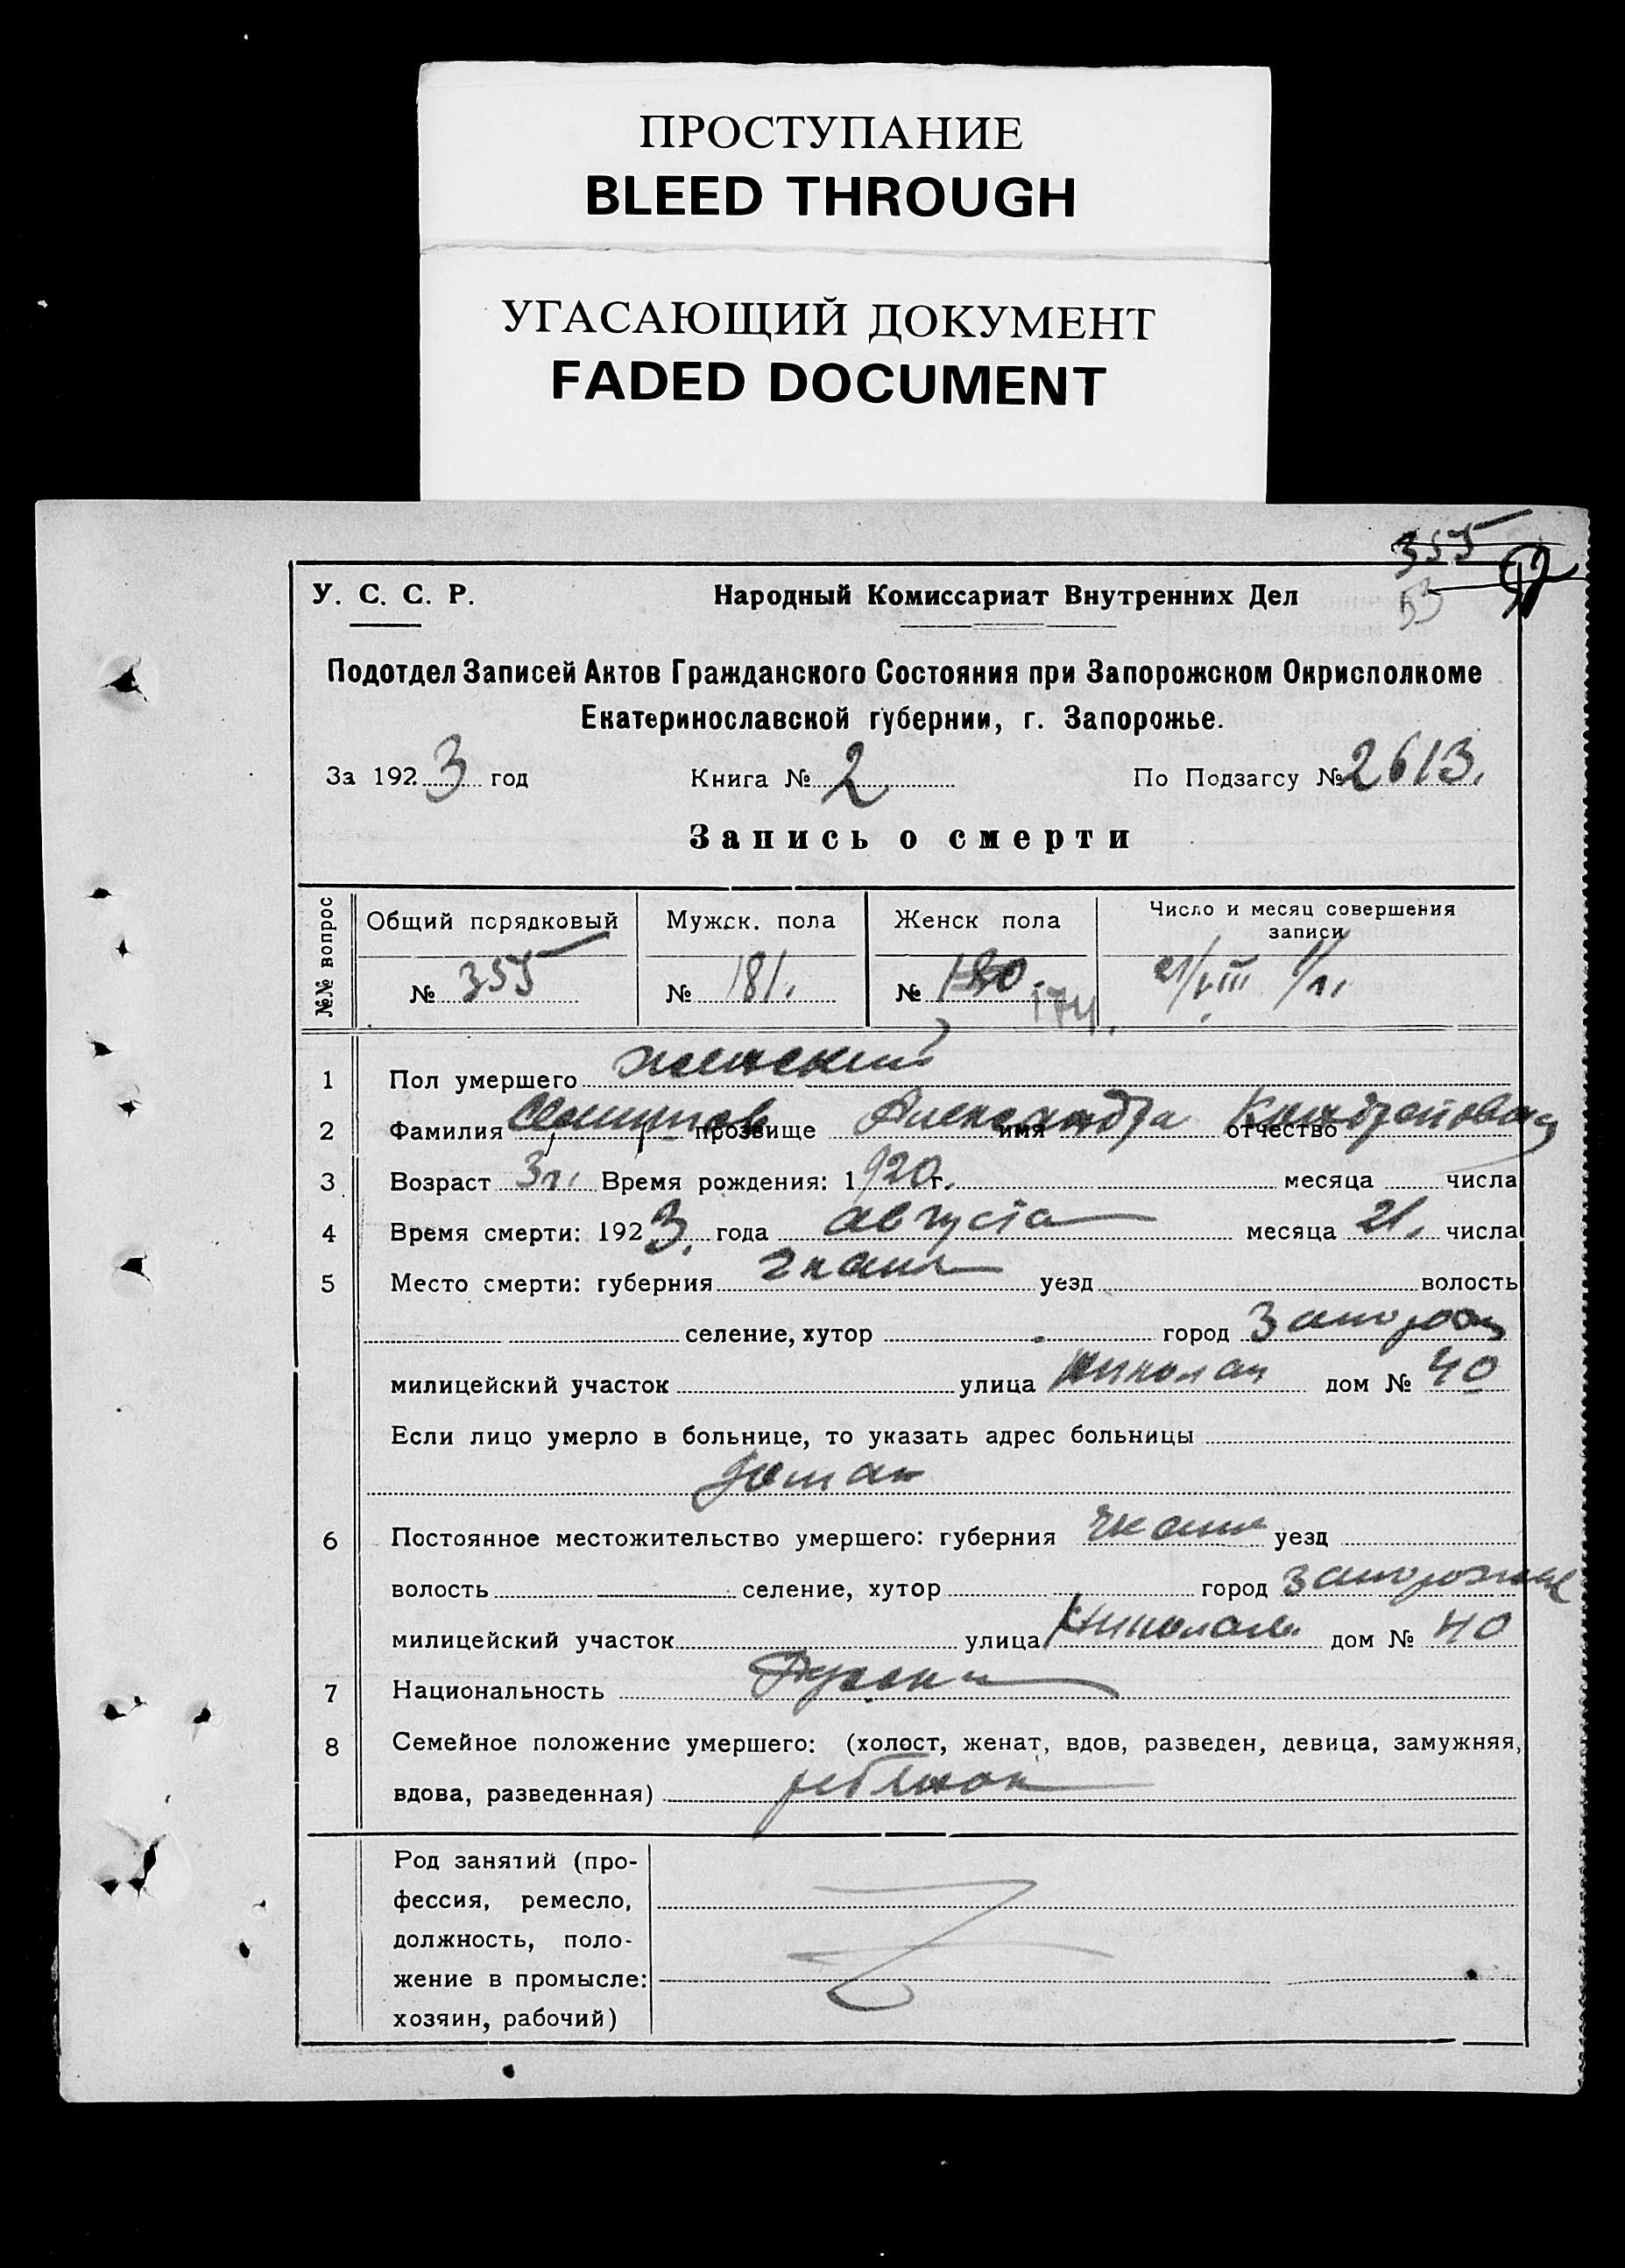 ПРОСТУПАНИЕ
BLEED THROUGH
УГАСАЮЩИЙ ДОКУМЕНТ
FADED DOCUMENT
355
53
У. С. С. Р. Народный Комиссариат Внутренних Дел
Подотдел Записей Актов Гражданского Состояния при Запорожском Окрисполкоме
Екатеринославской губернии, г. Запорожье.
За 1923 год Книга № 2 По Подзагсу № 2613.
Запись о смерти
№№ вопрос Общий порядковый Мужск. пола Женск пола Число и месяц совершения записи
№ 355 № 181. № 180. 21/VIII
174.
1 Пол умершего женский
2 Фамилия прозвище Александра имя отчество
3 Возраст 3 г. Время рождения: 1920 г. месяца числа
4 Время смерти: 1923. года августа месяца 21. числа
5 Место смерти: губерния уезд волость
селение, хутор город
милицейский участок улица дом № 40
Если лицо умерло в больнице, то указать адрес больницы
6 Постоянное местожительство умершего: губерния уезд
волость селение, хутор город Запорожье
милицейский участок улица дом № 40
7 Национальность
8 Семейное положение умершего: (холост, женат, вдов, разведен, девица, замужняя,
вдова, разведенная) ребенок
Род занятий (про-
фессия, ремесло,
должность, поло-
жение в промысле:
хозяин, рабочий)